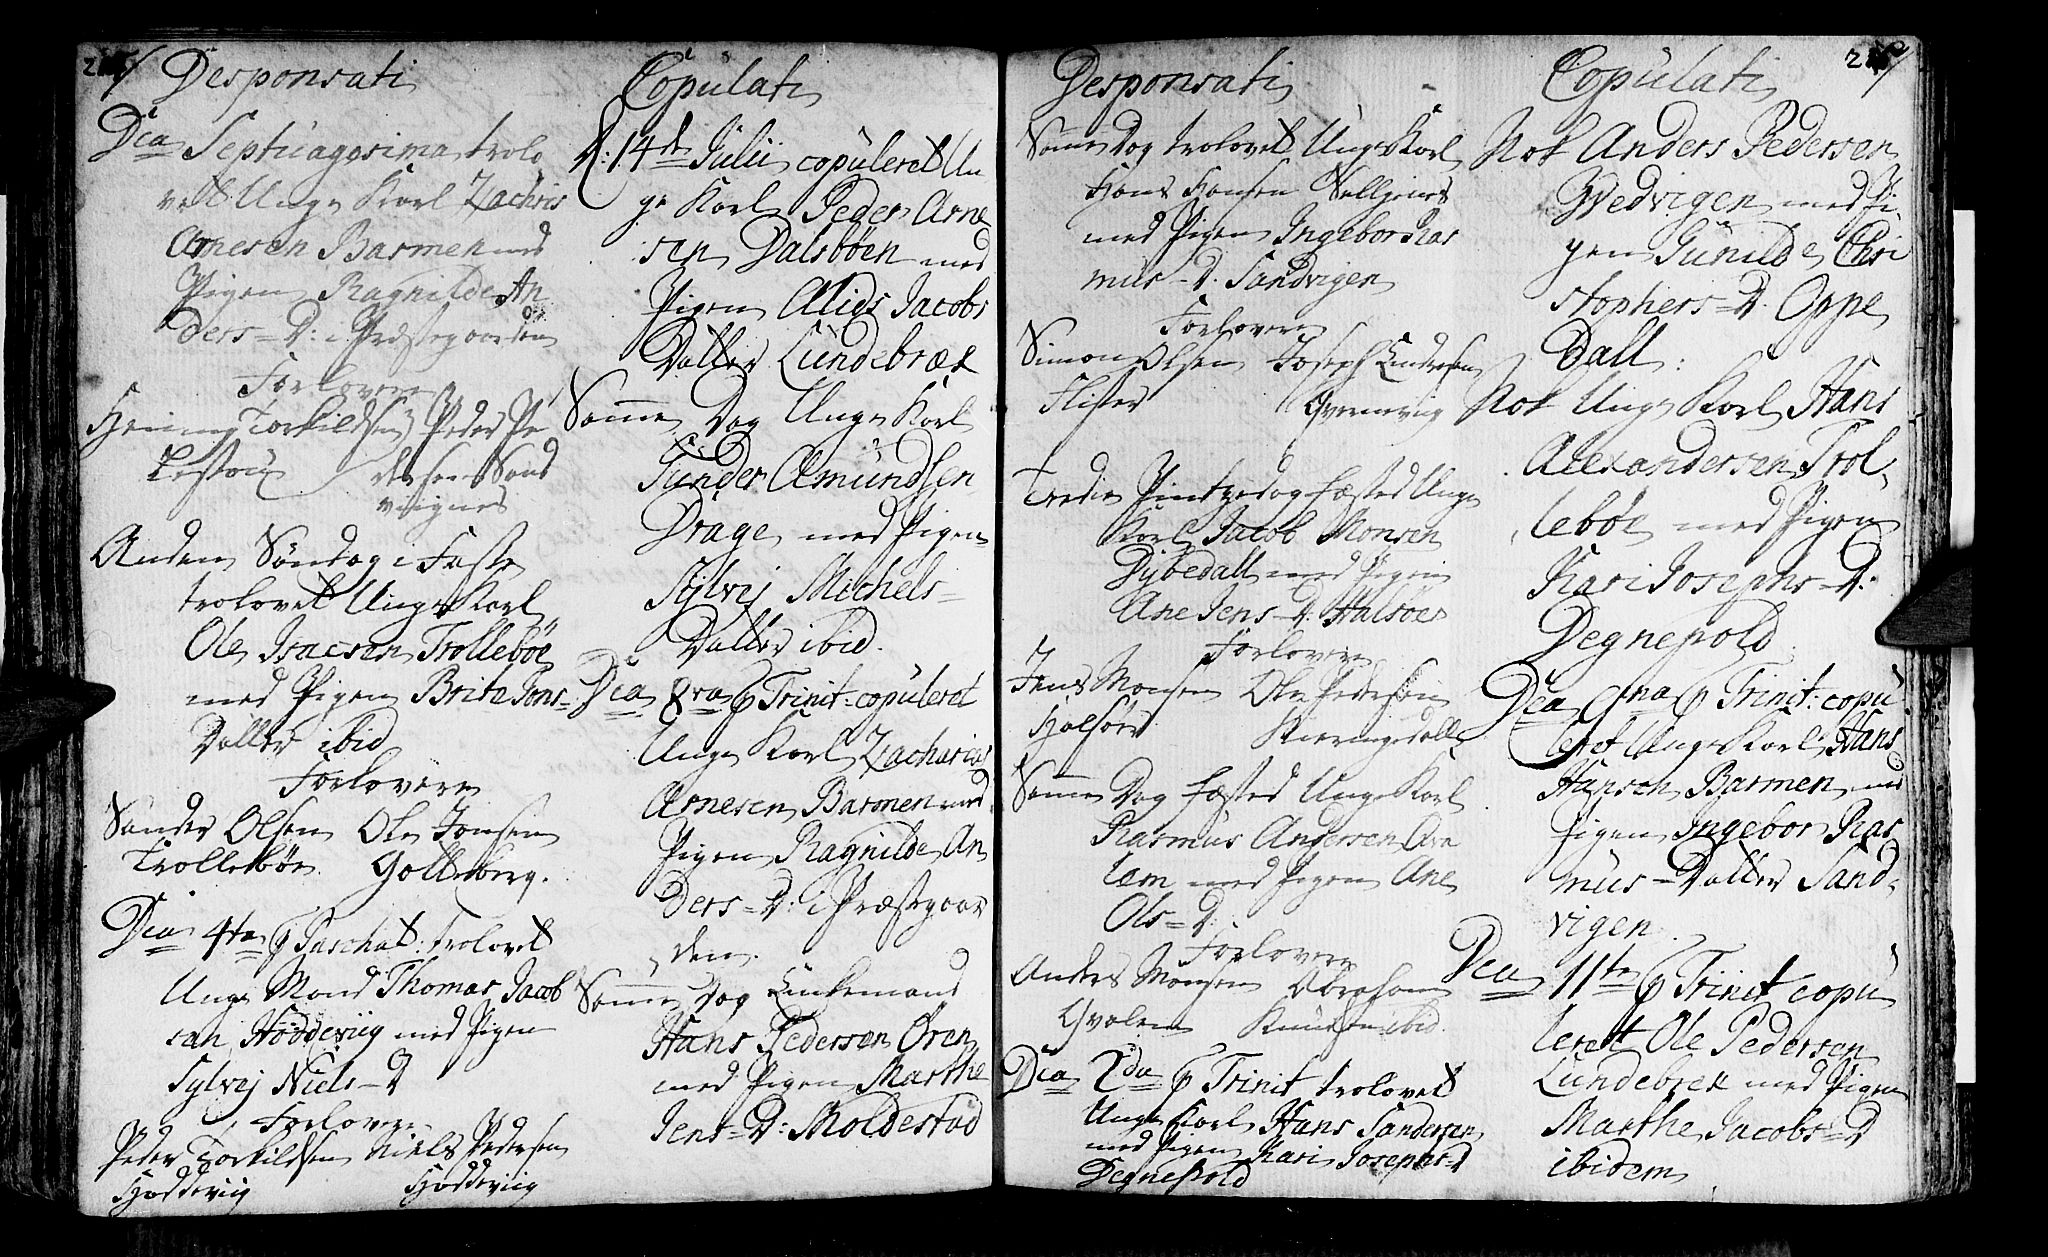 Desponsati
Dia Septuagesima trolo
vet Unge Karl Zachris
Arnesen Barmen med
Pigen Ragnilde An
ders=D: i Præstegaarden
Forlovere
Henning Torkildsen Peder Pe
dersen Sand
viignes
Anden Søndag i Faste
trolovet Unge Karl
Ole Isacsen Trollebøe
med Pigen Brite Jens=
Datter ibid
Forlovere
Sander Olsen Ole Jonsen
Trollebøe Golleberg.
Dia 4ta p Paschat: trolovet
Unge Mand Thomas Jacob
sen Hoddeviig med Pigen
Sylvej Niels=D
Forlovere
Peder Torkildsen Niels Pedersen
Hoddeviig Hoddeviig
Copulati
D: 14de Julii copuleret Un
ge Karl Peder Arne
sen Dalsbøen med
Pigen Alids Jacobs
Datter Lundebræk
Samme Dag Unge Karl
Gunder Amundsen
Drage med Pigen
Sylvej Michels=
Datter ibid.
Dia 8va p Trinit: copuleret
Unge Karl Zacharias
Arnesen Barmen med
Pigen Ragnilde An
ders=D: i Præstegaar
den.
Samme Dag Enkemand
Hans Pedersen Øren
med Pigen Marthe
Jens=D: Moldestad
Desponsati
Samme Dag trolovet Unge Karl
Hans Hansen
med Pigen Ingebor Ras
mus=D. Sandvigen
Forlovere
Simon Olsen Joseph
Flister
Tredie Pintzedag fæsted Unge
Karl Jacob Monsen
Dybedall med Pigen
Ane Jens=D. Halsøer
Forlovere
Jens Monsen Ole Pedersen
Halsøer Skaaringsdalle
Samme Dag fæsted Unge Karl
Rasmus Andersen Ara
tem med Pigen Ane
Ols=D:
Forlovere
Anders Monsen Abraham
Qvalem Knudsen ibid.
Dia 2da p Trinit trolovet
Unge Karl Hans Sandersen
med Pigen Kari Josephs=D
Degnepold
Copulati
Nok Anders Pedersen
Gjedvigen med Pi
gen Gunilde Chri
stophers=D. Oppe
Dall:
Nok Unge Karl Hans
Alexandersen Trol
lebøe med Pigen
Kari Josephs=D:
Degnepold
Dia 9na p Trinit: copu
leret Unge Karl Hans
Hansen Barmen med
Pigen Ingebor Ras
mus=Datter Sand
vigen.
Dia 11te p Trinit copu
leret Ole Pedersen
Lundebrek med Pigen
Marthe Jacobs=D
ibidem